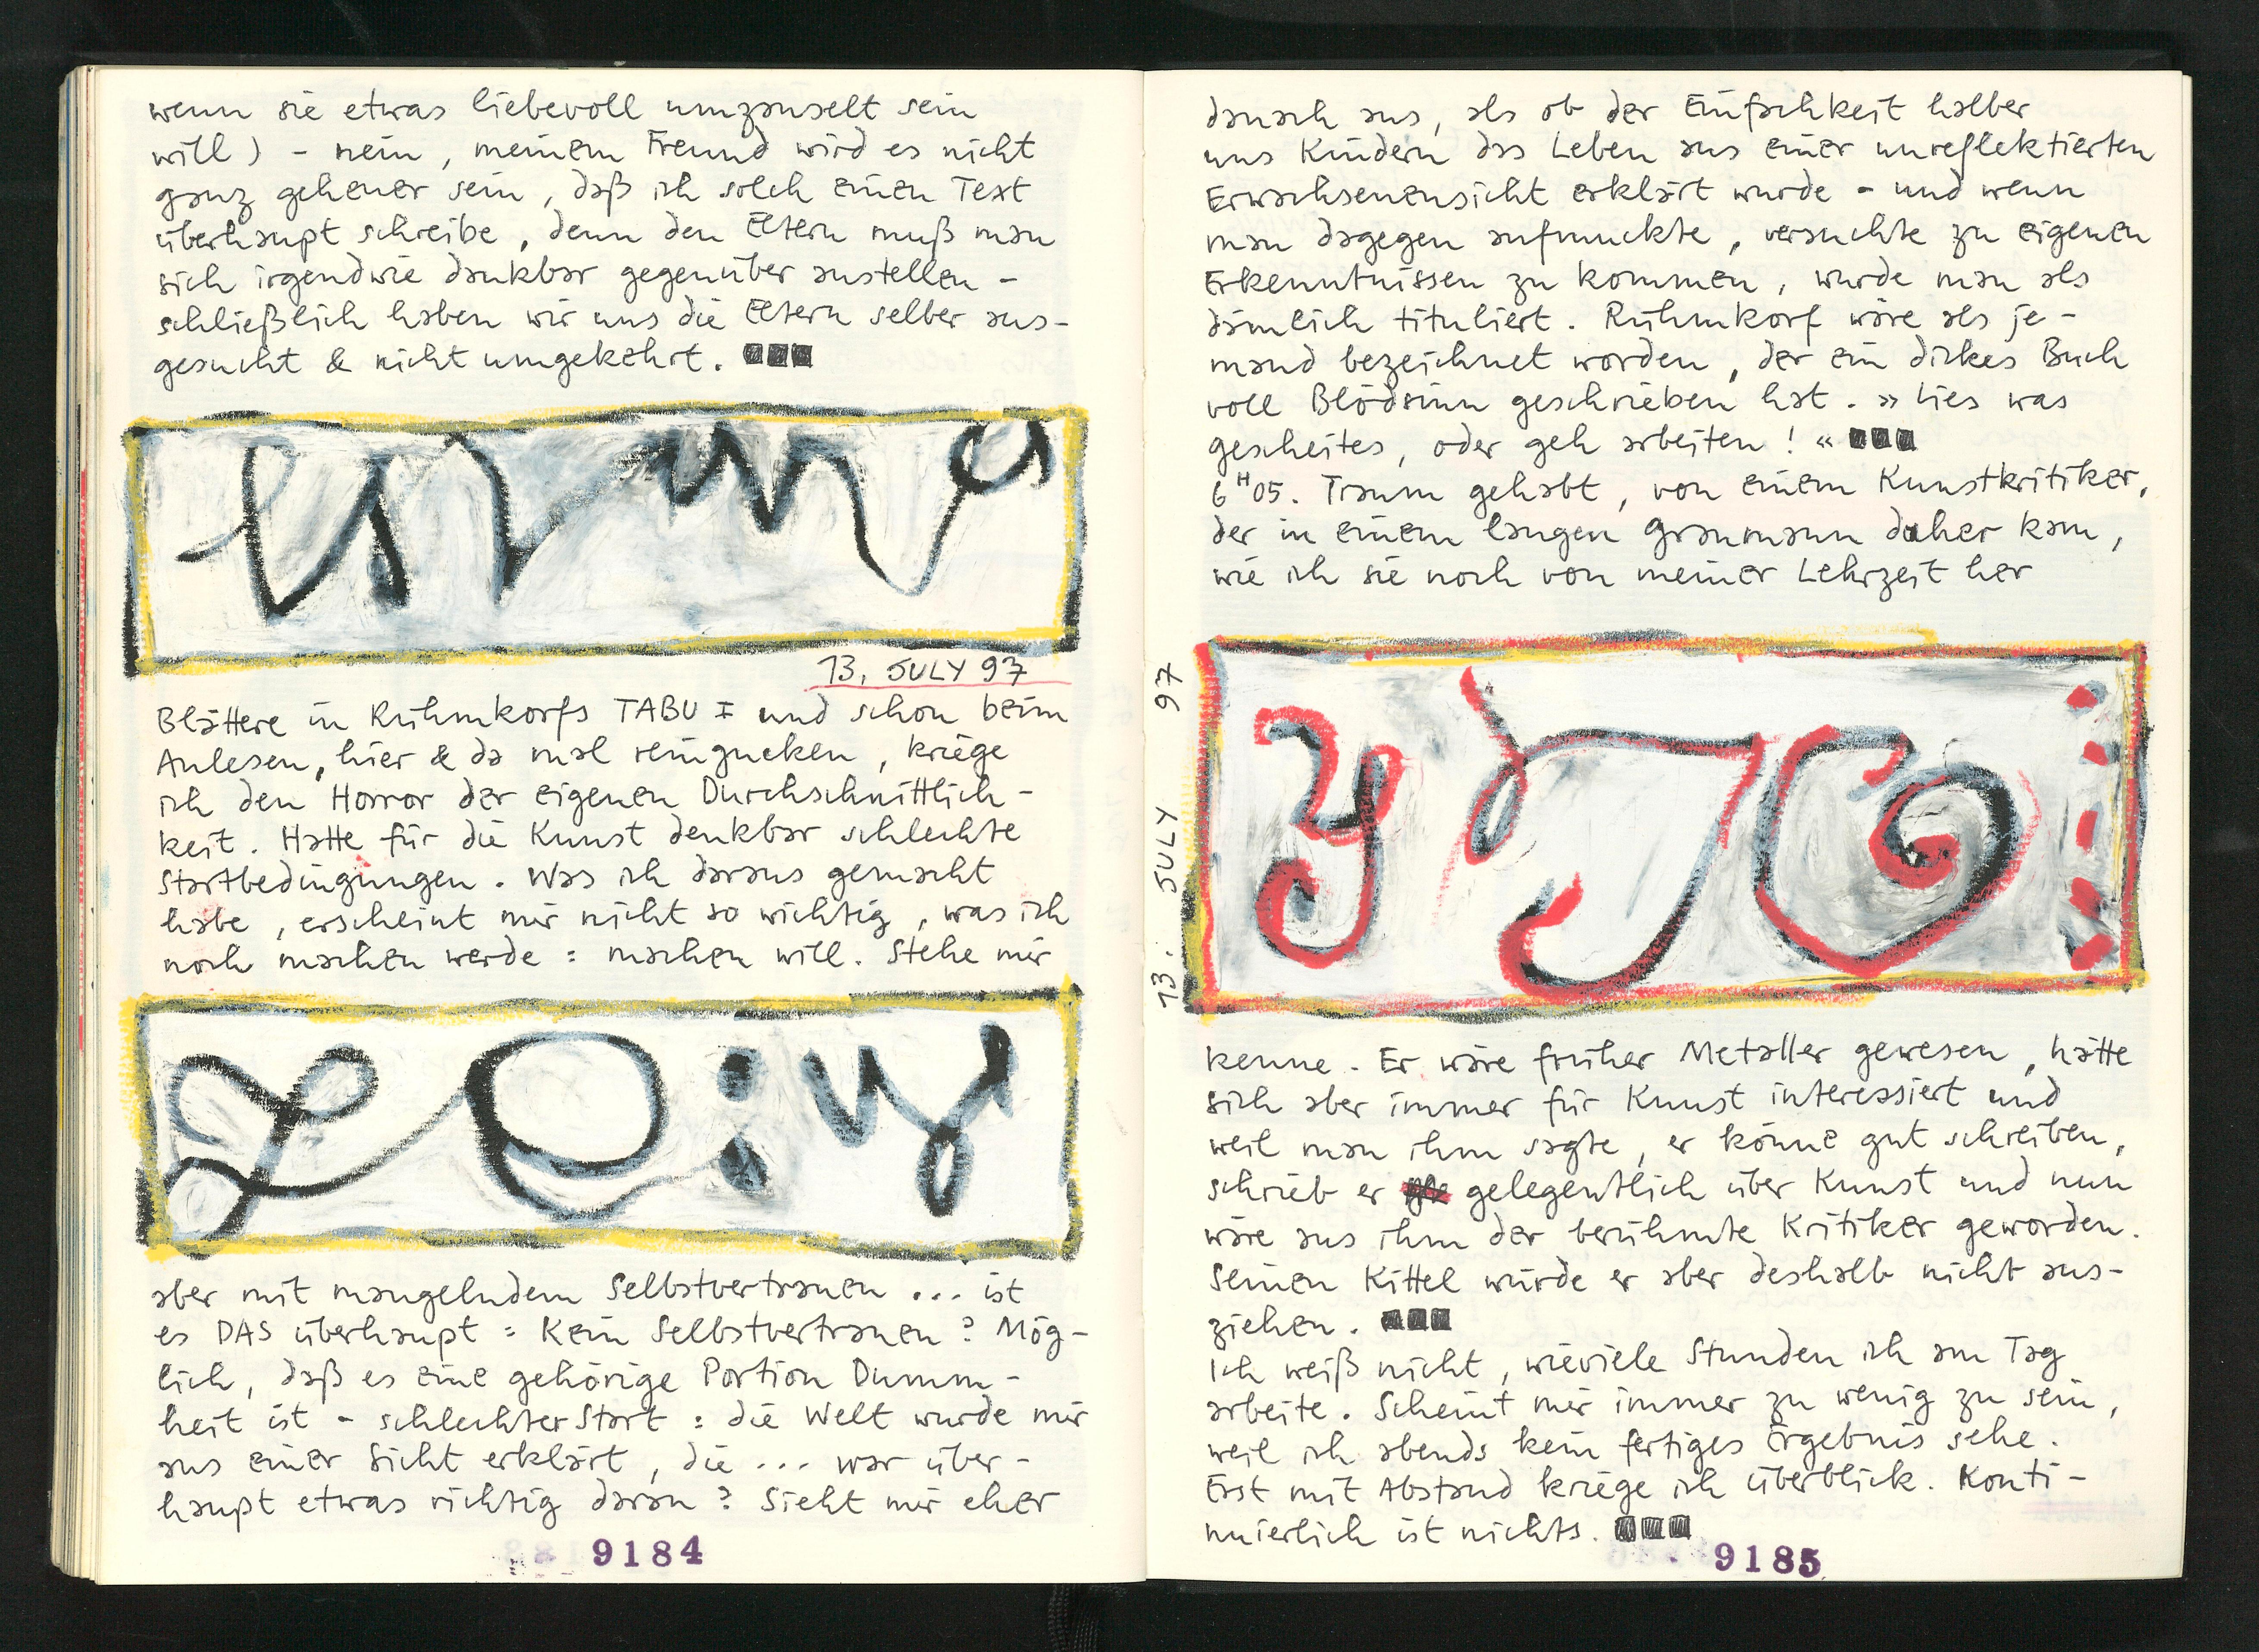 wenn sie etwas liebevoll umzauselt sein
will) - nein, meinem Freund wird es nicht
ganz geheuer sein, daß ich solch einen Text
überhaupt schreibe, denn den Eltern muß man
sich irgendwie dankbar gegenüber anstellen -
schließlich haben wir uns die Eltern selber aus-
gesucht & nicht umgekehrt.
13. JULY 97
Blättere in Rühmkorfs TABU I und schon beim
Anlesen, hier & da mal reingucken, kriege
ich den Horror der eigenen Durchschnittlich-
keit. Hatte für die Kunst denkbar schlechte
Startbedingungen. Was ich daraus gemacht
habe, erscheint mir nicht so wichtig, was ich
noch machen werde = machen will. Stehe mir
aber mit mangelndem Selbstvertrauen ... ist
es DAS überhaupt = Kein Selbstvertrauen? Mög-
lich, daß es eine gehörige Portion Dumm-
heit ist - schlechter Start = die Welt wurde mir
aus einer Sicht erklärt, die ... war über-
haupt etwas richtig daran? Sieht mir eher
9184
danach aus, als ob der Einfachkeit halber
uns Kindern das Leben aus einer unreflektierten
Erwachsenensicht erklärt wurde - und wenn
man dagegen aufmuckte, versuchte zu eigenen
Erkenntnissen zu kommen, wurde man als
dämlich tituliert. Rühmkorf wäre als je-
mand bezeichnet worden, der ein dickes Buch
voll Blödsinn geschrieben hat. »Lies was
gescheites, oder geh arbeiten!«
6 H 05. Traum gehabt, von einem Kunstkritiker,
der in einem langen Graumann daher kam,
wie ich sie noch von meiner Lehrzeit her
13. JULY 97
kenne. Er wäre früher Metaller gewesen, hätte
sich aber immer für Kunst interessiert und
weil man ihm sagte, er könne gut schreiben,
schrieb er gelegentlich über Kunst und nun
wäre aus ihm der berühmte Kritiker geworden.
Seinen Kittel würde er aber deshalb nicht aus-
ziehen.
Ich weiß nicht, wieviele Stunden ich am Tag
arbeite. Scheint mir immer zu wenig zu sein,
weil ich abends kein fertiges Ergebnis sehe.
Erst mit Abstand kriege ich Überblick. Konti-
nuierlich ist nichts.
9185